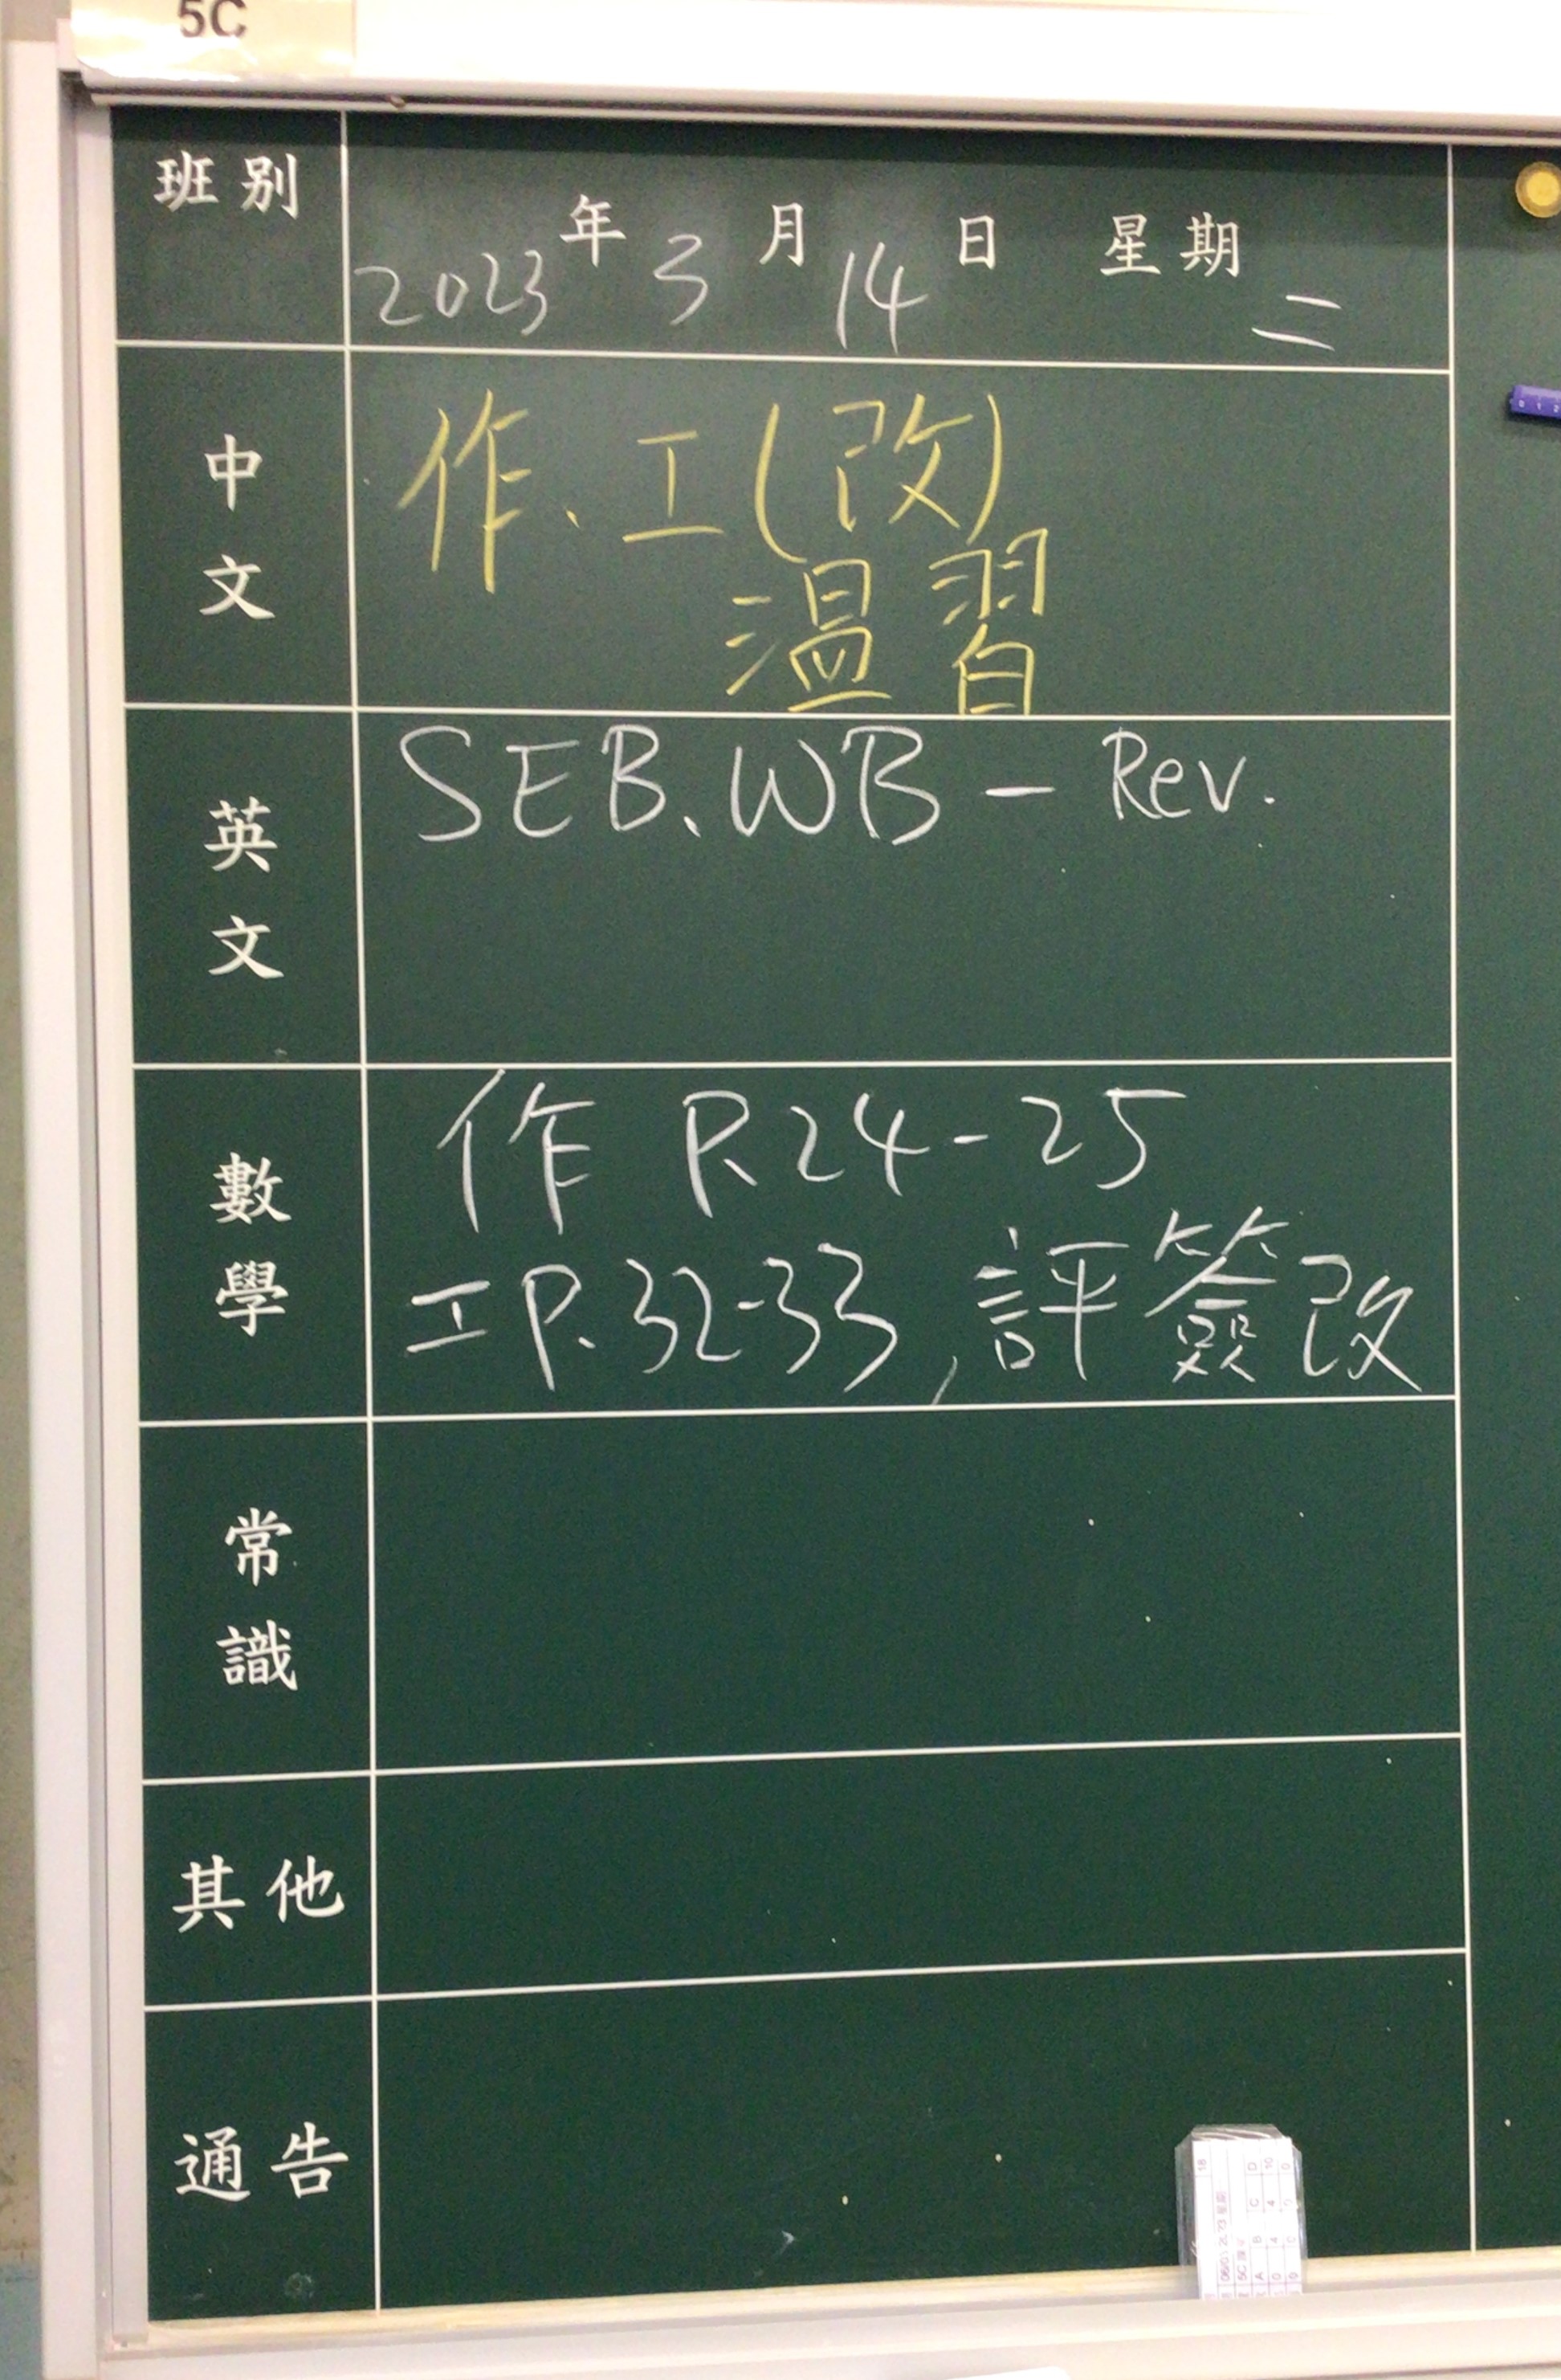 5C
班別
年 月 日 星期
2023 3 14 二
中文
作、工(改)
溫習
英文
SEB、WB — Rev.
數學
作 P.24-25
工 P.32-33, 評簽改
常識
其他
通告